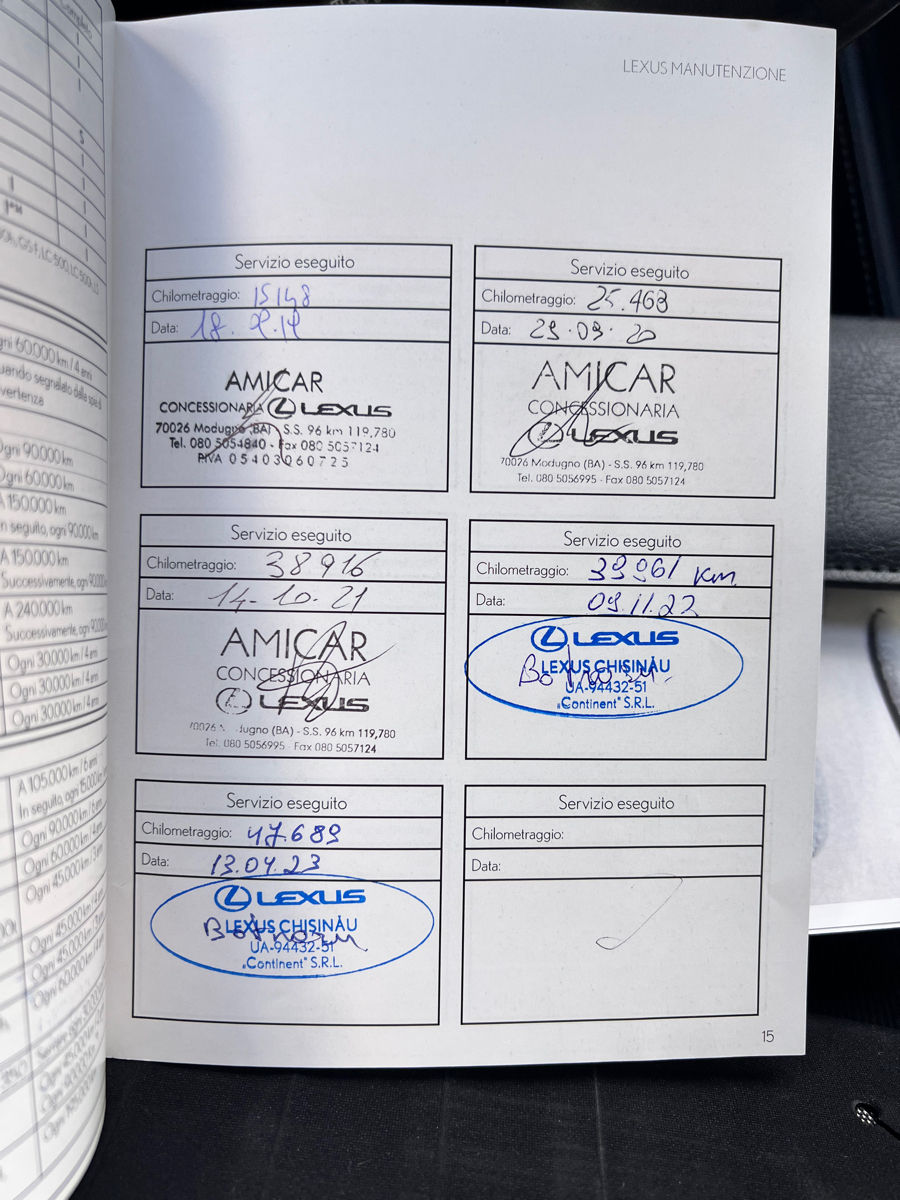 Completo
I
I
I
S
I
I
I
I
I
I***
I
Ogni 60.000 km / 4 anni
Ogni 90.000 km
Ogni 60.000 km
A 150.000 km
In seguito, ogni 90.000 km
A 150.000 km
Successivamente, ogni 90.000
A 240.000 km
Successivamente, ogni 90.000 km
Ogni 30.000 km / 4 anni
Ogni 30.000 km / 4 anni
Ogni 30.000 km / 4 anni
A 105.000 km / 6 anni
In seguito, ogni 15.000 km
Ogni 90.000 km / 6 anni
Ogni 60.000 km / 4 anni
Ogni 45.000 km / 3 anni
Ogni 45.000 km
Ogni 45.000 km
Ogni 60.000 km
LEXUS MANUTENZIONE
Servizio eseguito
Chilometraggio: 15148
Data: 18.
AMICAR
CONCESSIONARIA LEXUS
70026 Modugno (BA) - S.S. 96 km 119,780
Tel. 080 5054840 - Fax 080 5057124
P.IVA 05403060725
Servizio eseguito
Chilometraggio: 25.463
Data: 23.09.20
AMICAR
CONCESSIONARIA
LEXUS
70026 Modugno (BA) - S.S. 96 km 119,780
Tel. 080 5056995 - Fax 080 5057124
Servizio eseguito
Chilometraggio: 38916
Data: 14-10.21
AMICAR
CONCESSIONARIA
LEXUS
70026 Modugno (BA) - S.S. 96 km 119,780
Tel. 080 5056995 - Fax 080 5057124
Servizio eseguito
Chilometraggio: 39961 km
Data: 09.11.22
LEXUS
LEXUS CHIȘINĂU
UA-94432-51
„Continent" S.R.L.
Servizio eseguito
Chilometraggio: 47.689
Data: 13.04.23
LEXUS
LEXUS CHIȘINĂU
UA-94432-51
„Continent" S.R.L.
Servizio eseguito
Chilometraggio:
Data:
15